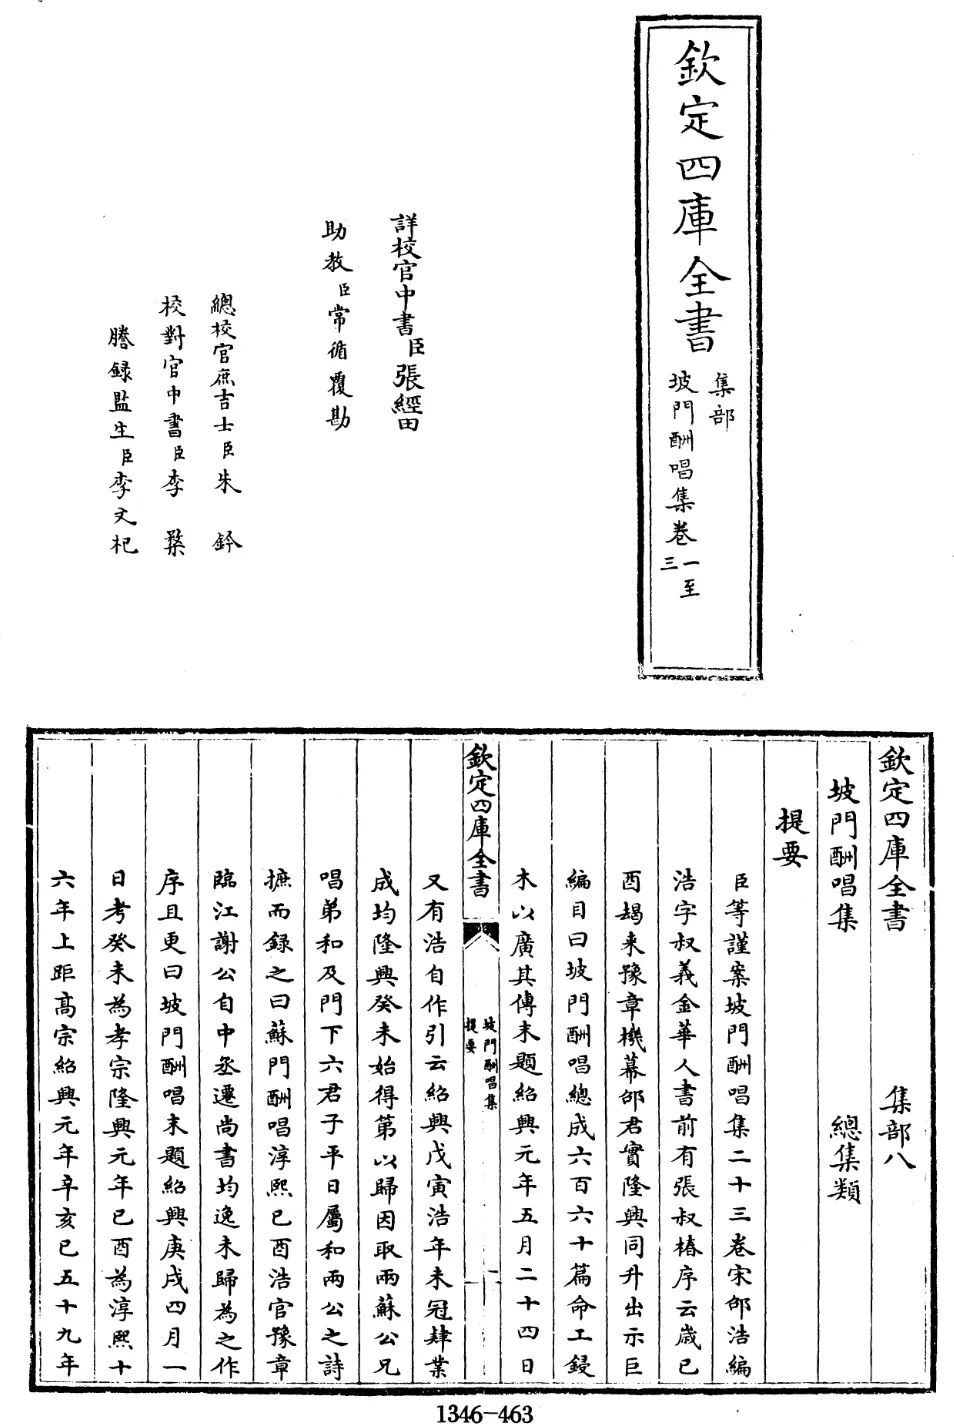 欽定四庫全書
集部
坡門酬唱集卷一至三
詳校官中書臣張經田
助教臣常循覆勘
總校官庶吉士臣朱鈐
校對官中書臣李棨
謄録監生臣李文杞
欽定四庫全書 集部八
坡門酬唱集 總集類
提要
臣等謹案坡門酬唱集二十三卷宋邵浩編
浩字叔義金華人書前有張叔椿序云歲已
酉朅来豫章機幕邵君實隆興同升出示巨
編目曰坡門酬唱總成六百六十篇命工鋟
木以廣其傳末題紹興元年五月二十四日
欽定四庫全書
坡門酬唱集
提要
一
又有浩自作引云紹興戊寅浩年未冠肄業
成均隆興癸未始得第以歸因取兩蘇公兄
唱弟和及門下六君子平日屬和兩公之詩
摭而録之曰蘇門酬唱淳熙已酉浩官豫章
臨江謝公自中丞遷尚書均逸未歸為之作
序且更曰坡門酬唱末題紹興庚戌四月一
日考癸未為孝宗隆興元年已酉為淳熙十
六年上距高宗紹興元年辛亥已五十九年
1346-463